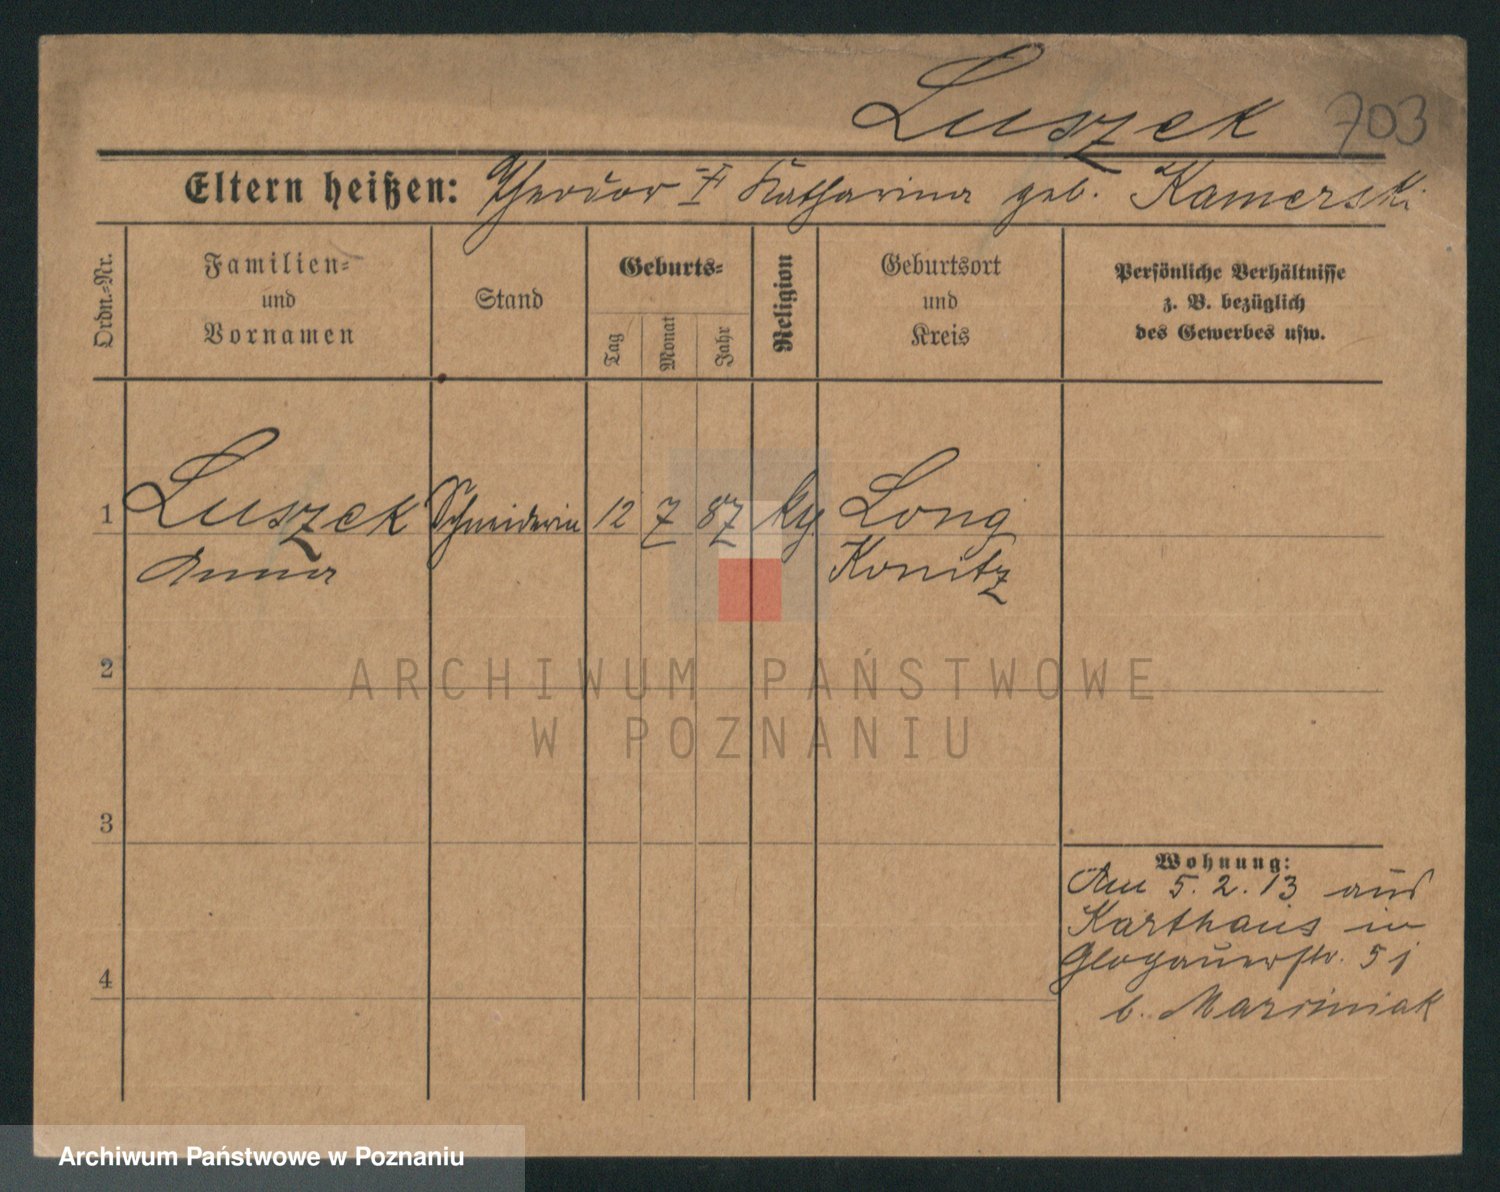 Luszek 703
Eltern heißen: Theodor & Katharina geb. Kamerski
Ordn.-Nr.
Familien-
und
Vornamen
Stand
Geburts-
Tag
Monat
Jahr
Religion
Geburtsort
und
Kreis
Persönliche Verhältnisse
z. B. bezüglich
des Gewerbes usw.
1 Luszek Schneiderin 12 7 87 Long
Anna Konitz
2
3
4
Wohnung:
Am 5. 2. 13 aus
Karthaus in
Glogauerstr. 51
b. Marciniak
ARCHIWUM PAŃSTWOWE
W POZNANIU
Archiwum Państwowe w Poznaniu